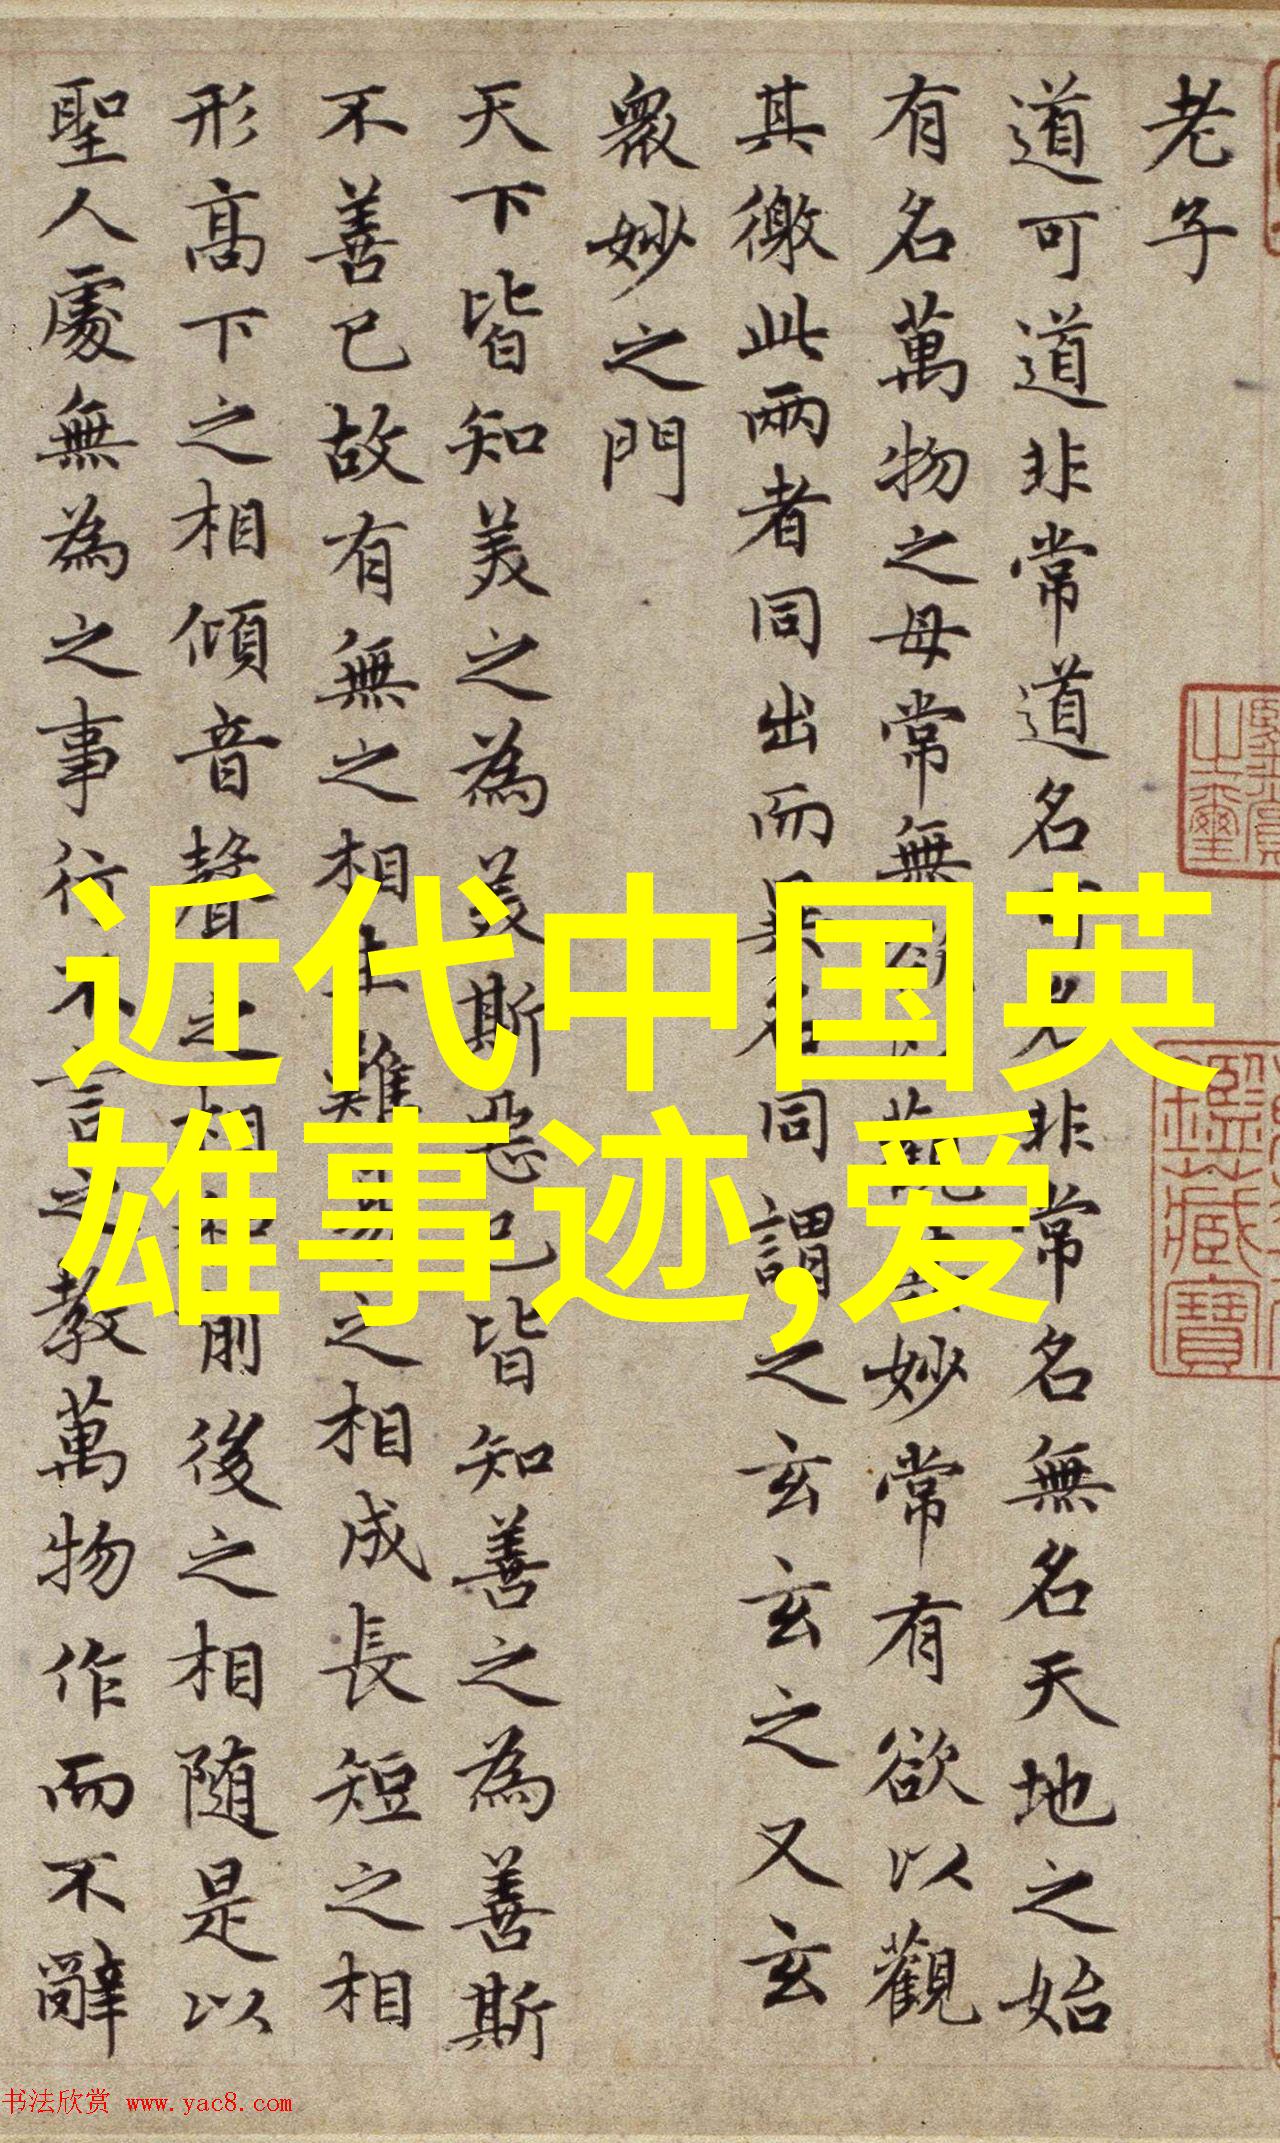 老子
道可道非常道名可名非常名無名天地之始
有名萬物之母常無欲以觀其妙常有欲以觀
其徼此兩者同出而異名同謂之玄玄之又玄
衆妙之門
天下皆知美之為美斯惡已皆知善之為善斯
不善已故有無之相生難易之相成長短之相
形高下之相傾音聲之相和前後之相随是以
聖人處無為之事行不言之教萬物作而不辭
近代中国英
雄事迹,爱
书法欣赏 www.yac8.com